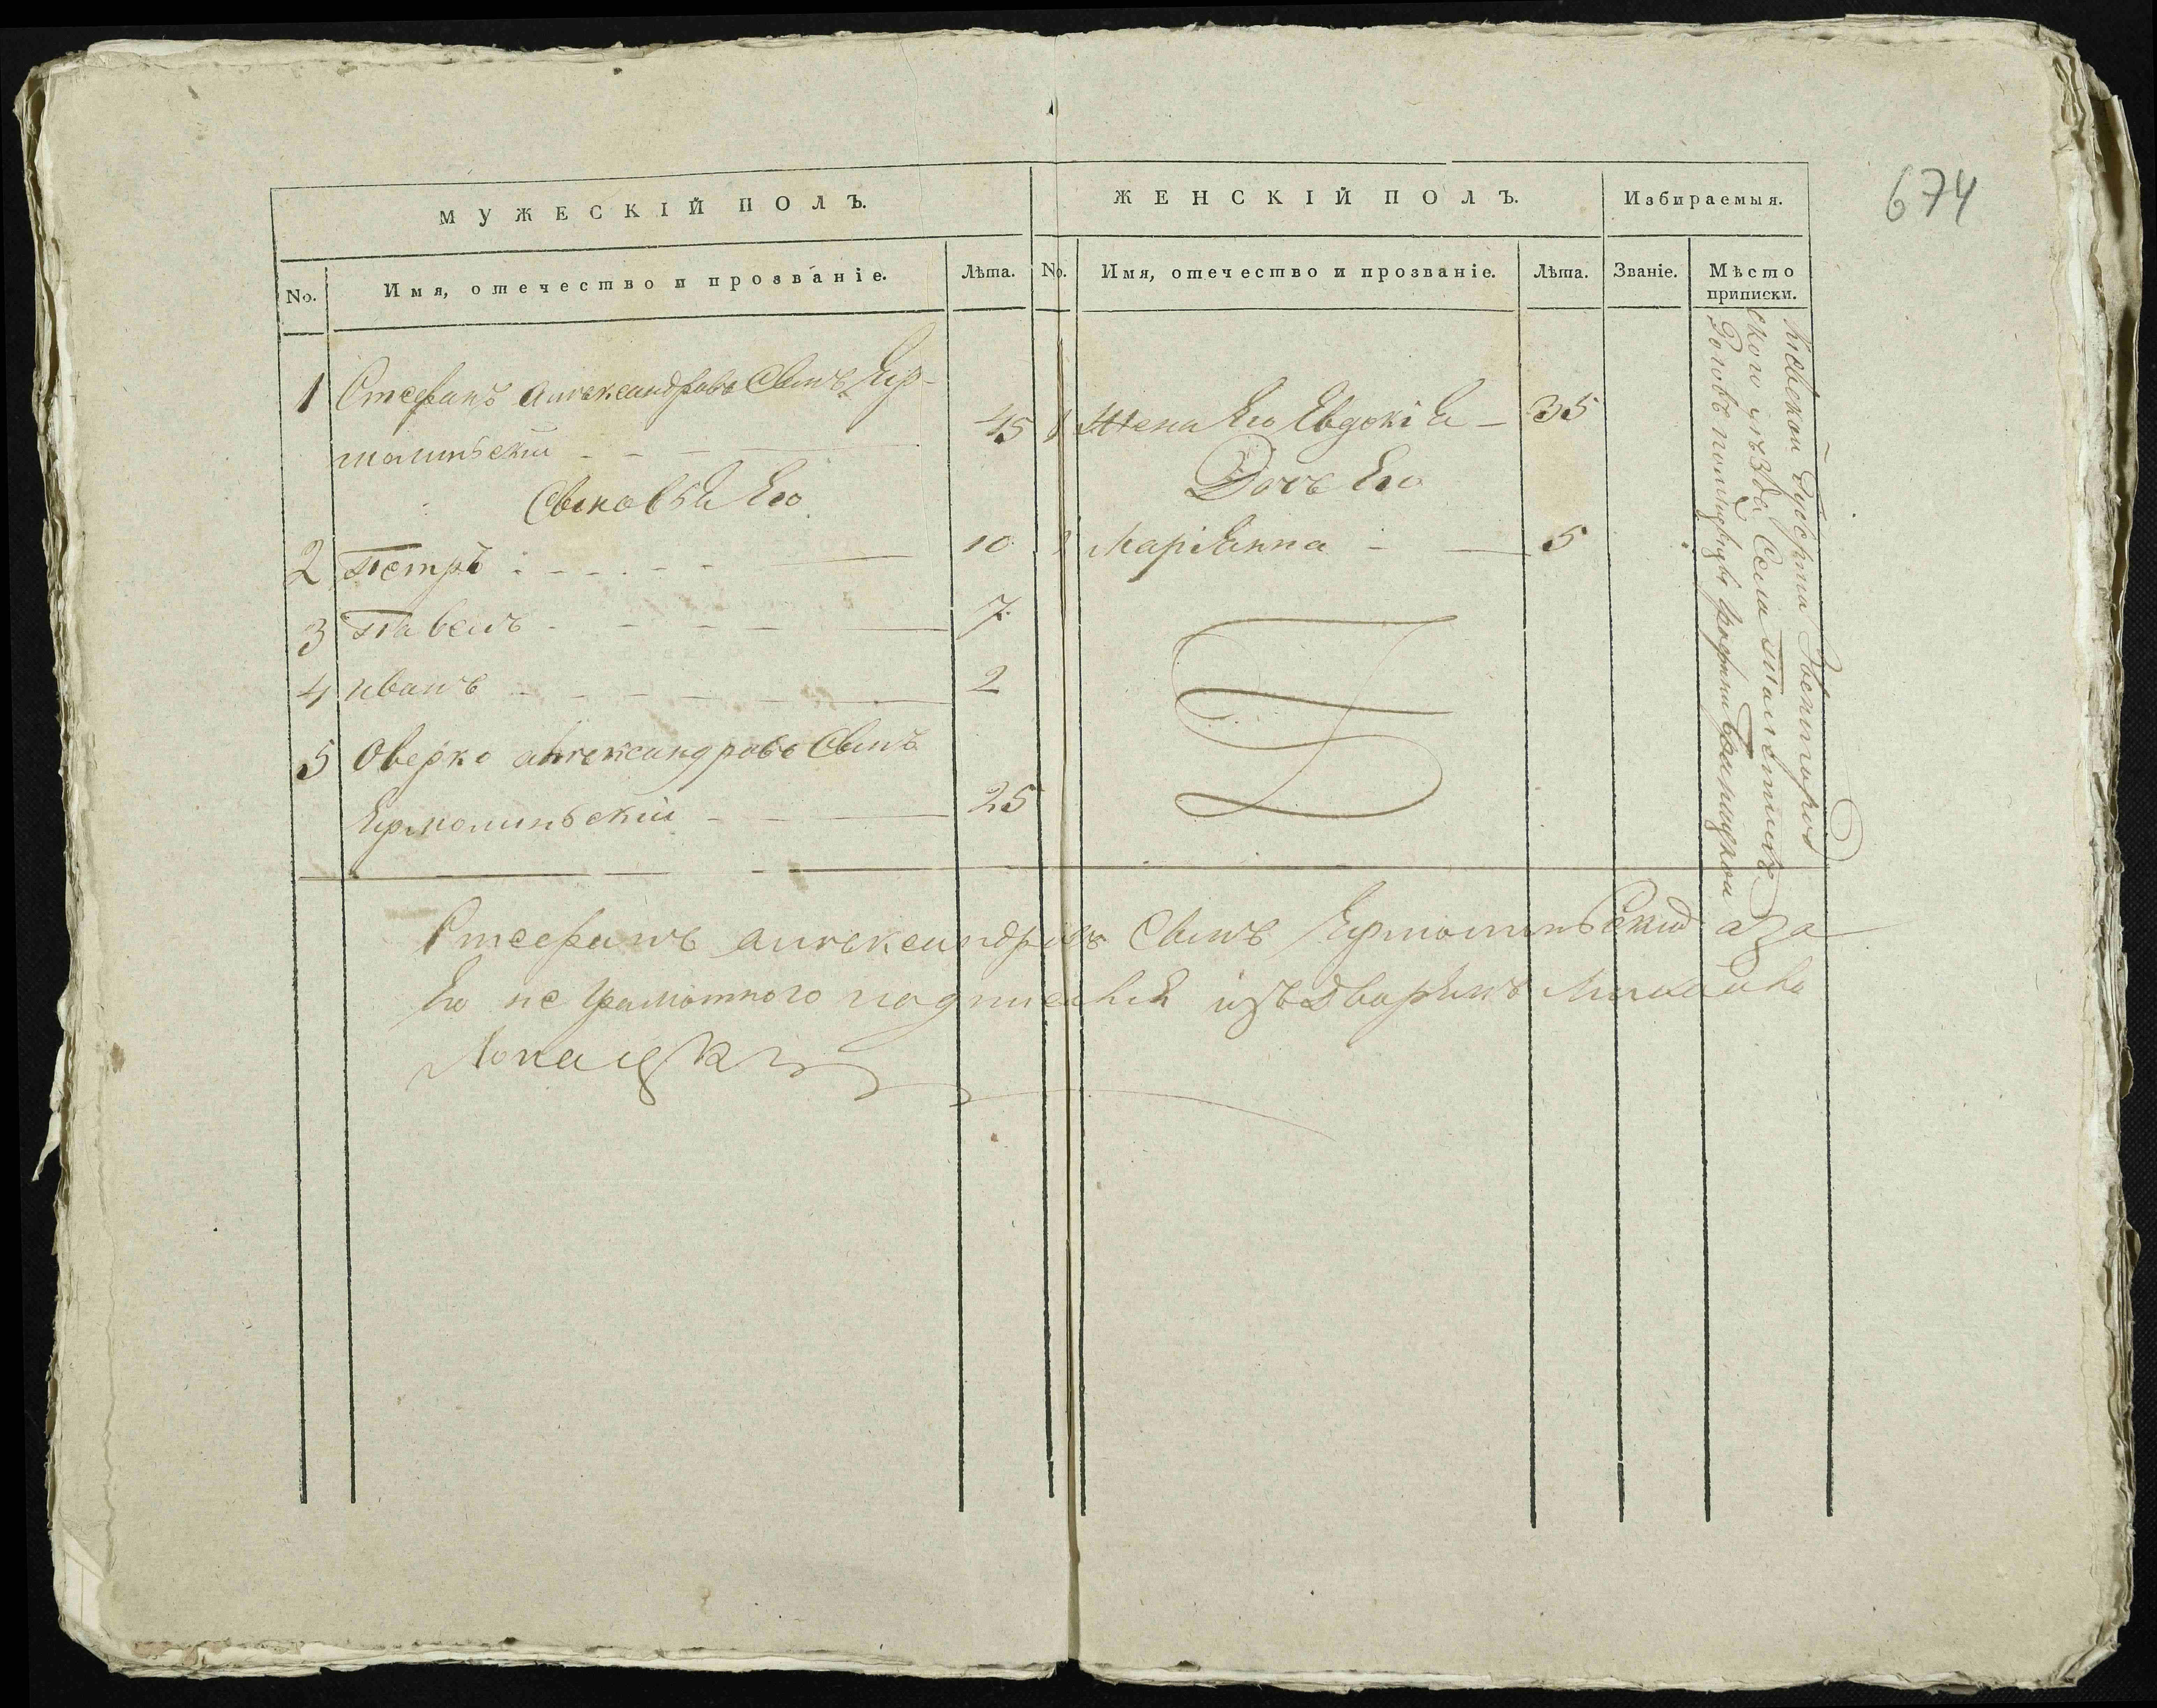 674
МУЖЕСКІЙ ПОЛЪ.
No. Имя, отечество и прозваніе. Лѣта.
1 Стефанъ Александровъ Сынъ Яр-
молинскій 45
Сыновья Его
2 Петръ 10
3 Павелъ 7
4 иванъ 2
5 Оверко александровъ Сынъ
Ярмолинскій 25
ЖЕНСКІЙ ПОЛЪ.
No. Имя, отечество и прозваніе. Лѣта.
1 Жена Его Евдокія 35
Дочь Его
Маріянна 5
Избираемыя.
Званіе. Мѣсто
приписки.
Кіевской Губерніи Звенигород
ского уѣзда Села
Стефанъ александровъ Сынъ Ярмолинскій а за
Его не грамотного подписался изъ Дворянъ